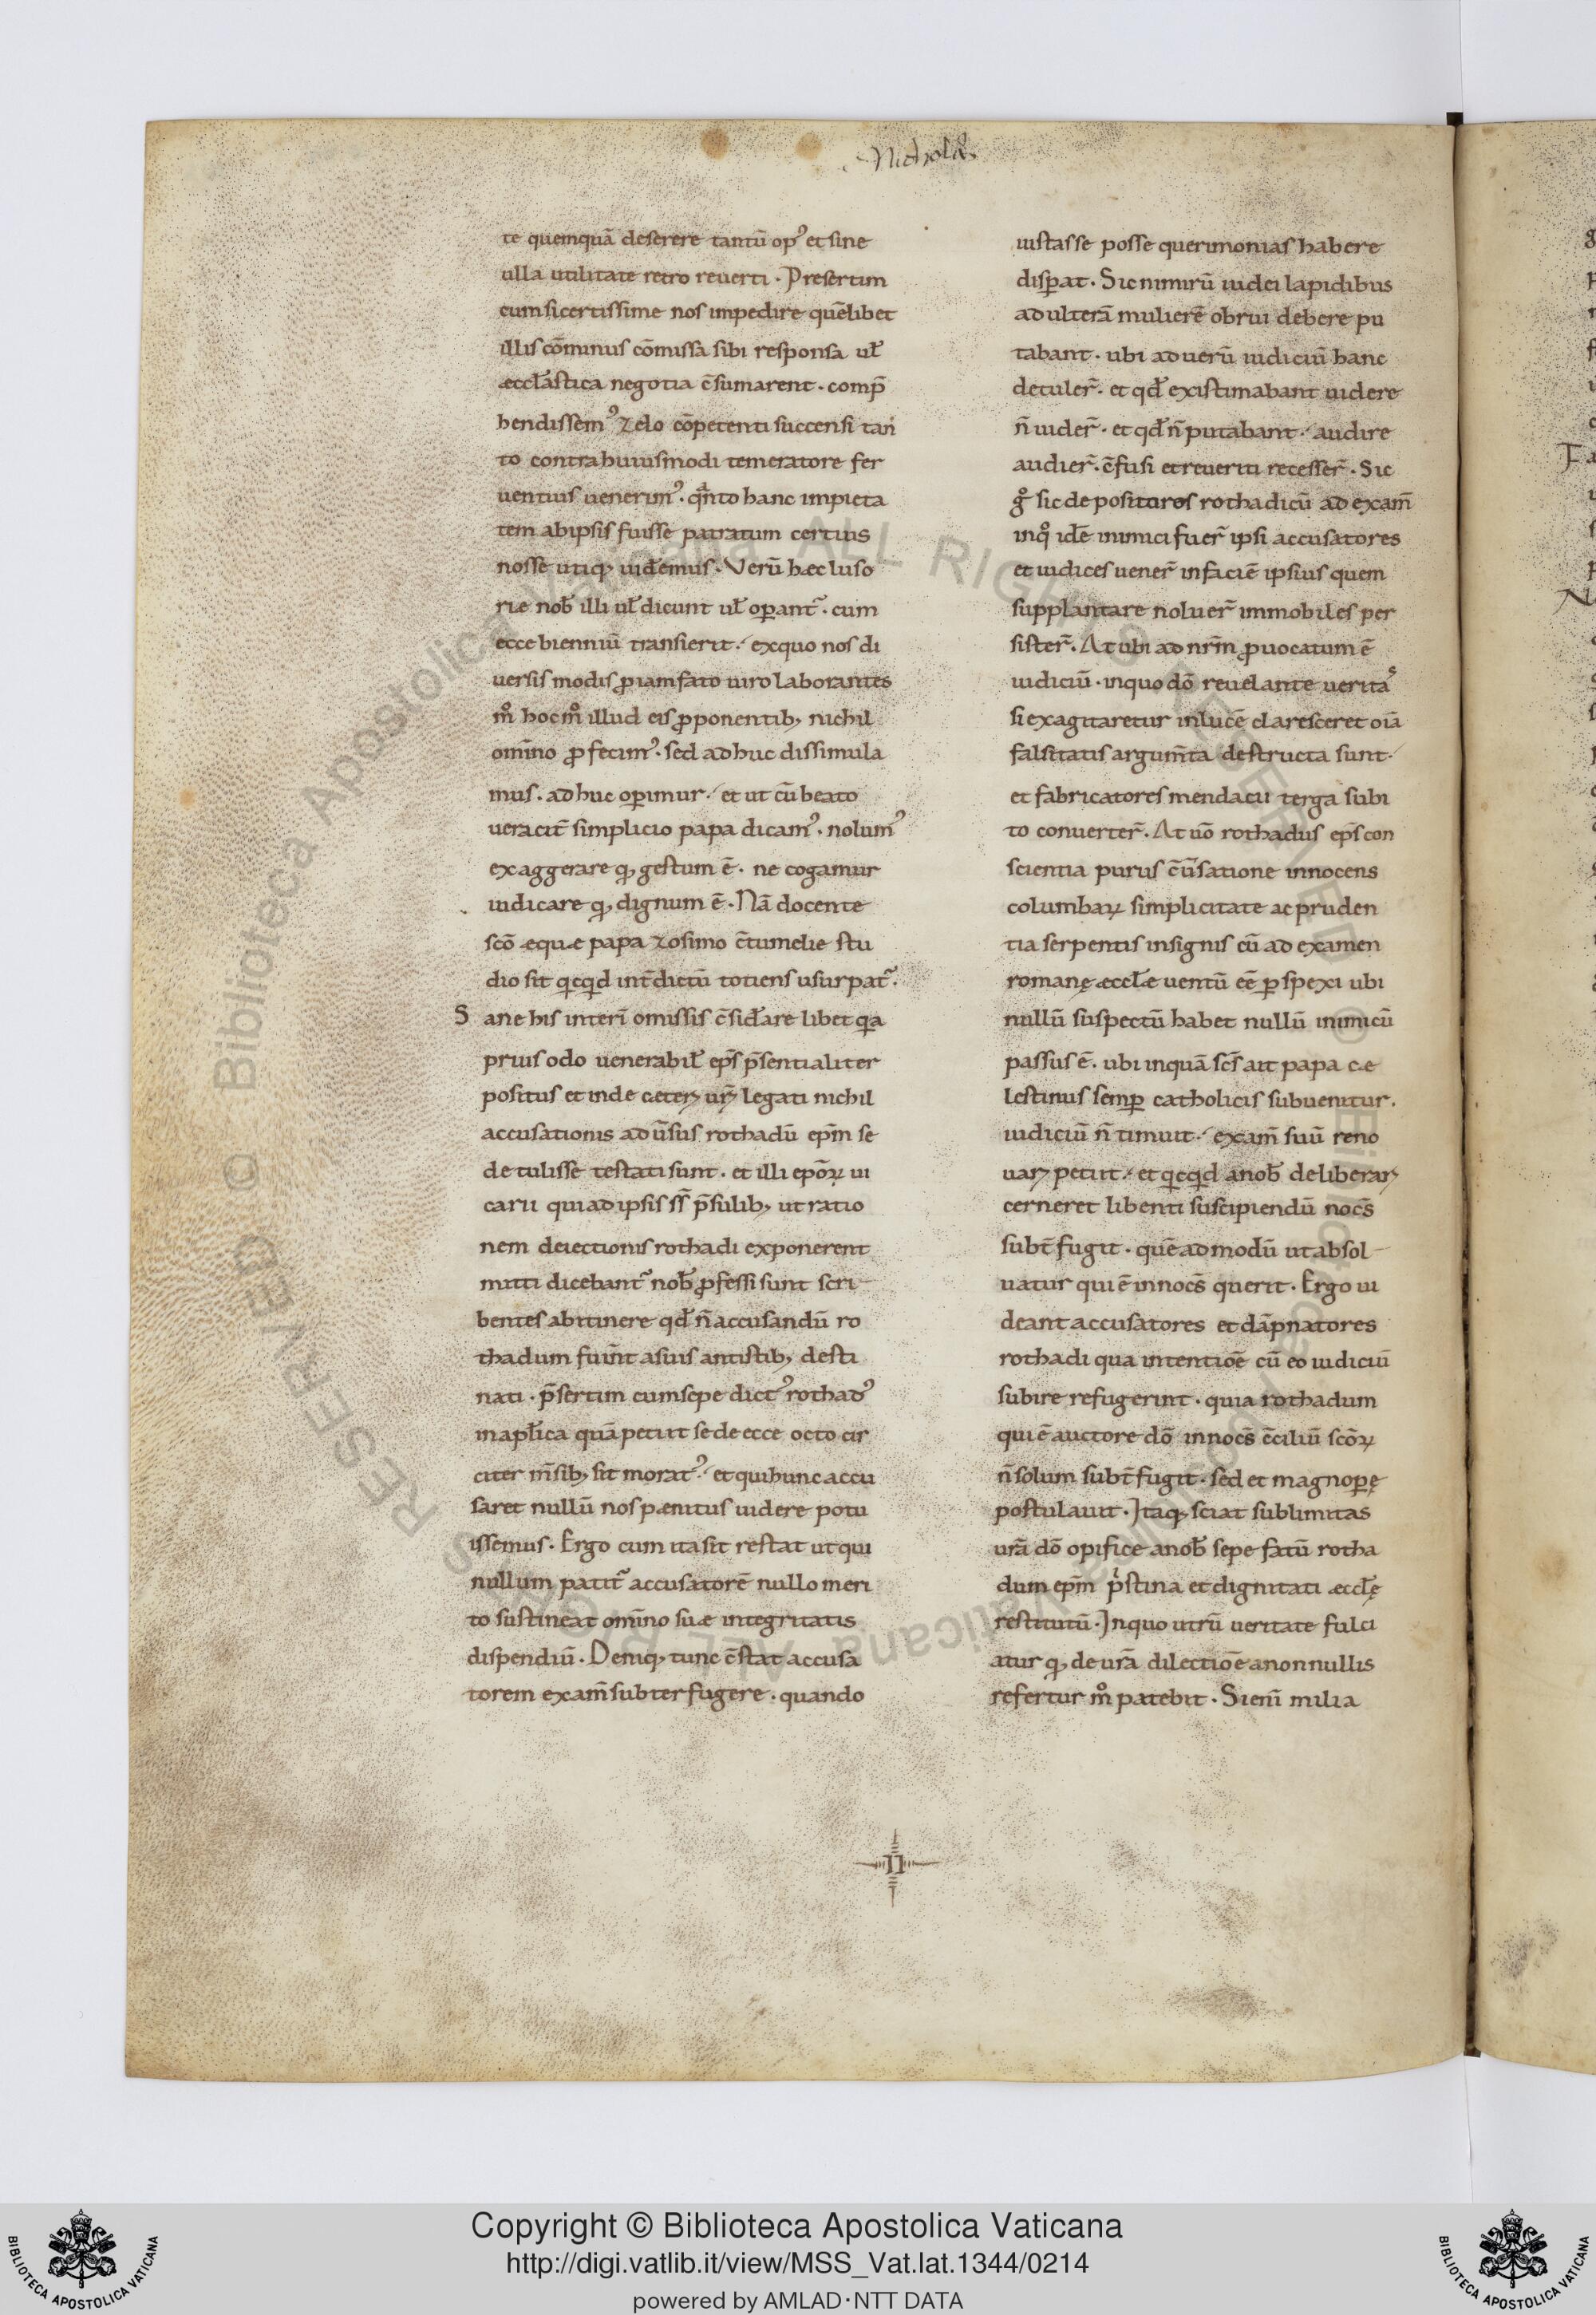 Nichola&
te quemquā deserere tantū opꝰ et sine
ulla utilitate retro reuerti · Presertim
cum si certissime nos impedire quēlibet
illis cōminus cōmissa sibi responsa ul̄
æccl̄astica negotia c̄sumarent · comp̄
hendissemꝰ zelo cōpetenti succensi tan
to contra huiusmodi temeratore fer
uentius uenerimꝰ · qͣnto hanc impieta
tem ab ipsis fuisse patratum certius
nosse utiq; uidemus · Verū hæc luso
riæ nob̄ illi ul̄ dicunt ul̄ oꝑant᷑ · cum
ecce bienniū transierit · ex quo nos di
uersis modis ꝓ iam fato uiro laborantes
m̊ hoc m̊ illud eis ꝓponentib; nichil
omīno ꝓfecimꝰ · sed adhuc dissimula
mus · adhuc oꝑimur · et ut cū beato
ueracit̄ simplicio papa dicamꝰ · nolumꝰ
exaggerare q; gestum ē · ne cogamur
iudicare q; dignum ē · Nā docente
scō æquæ papa zosimo c̄tumelie stu
dio sit qͥcqͥd int̄dictū totiens usurpat᷑ ·
S ane his interī omissis c̄sid̄are libet qꝫa
prius odo uenerabil̄ ep̄s p̄sentialiter
positus et inde cæterꝝ urꝝ legati nichil
accusationis adūsus rothadū ep̄m se
detulisse testati sunt · et illi epōꝝ ui
carii qui ad ipsis ss̄ p̄sulib; ut ratio
nem deiectionis rothadi exponerent
mitti dicebant᷑ nob̄ ꝓfessi sunt scri-
bentes ab itinere qd̄ n̄ accusandū ro
thadum fuīnt a suis antistib; desti
nati · p̄sertim cum sepe dictꝰ rothadꝰ
in apl̄ica quā petiit sede ecce octo cir
citer m̄sib; sit moratꝰ · et qui hunc accu
saret nullū nos pænitus uidere potu
issemus · Ergo cum ita sit restat ut qui
nullum patit᷑ accusatorē nullo meri
to sustineat omīno suæ integritatis
dispendiū · Deniq; tunc c̄stat accusa
torem exam̄ subterfugere · quando
iustas se posse querimonias habere
disꝑat · Sic nimirū iudei lapidibus
adulterā mulierē obrui debere pu
tabant · ubi ad uerū iudiciū hanc
detuler̄ · et qd̄ existimabant uidere
n̄ uider̄ · et qd̄ n̄ putabant · audire
audier̄ · c̄fusi et reueriti recesser̄ · Sic
g̊ sic depositores rothadi cū ad exam̄
in q̊ idē inimici fuer̄ ipsi accusatores
et iudices uener̄ in faciē ipsius quem
supplantare uoluer̄ immobiles per
sister̄ · At ubi ad nr̄m ꝓuocatum ē
iudiciū · in quo dō reuelante uerita ͤ
si exagitaretur in lucē claresceret oīa
falsitatis argum̄ta destructa sunt ·
et fabricatores mendacii terga subi
to conuerter̄ · At uō rothadus ep̄s con
scientia purus c̄ūsatione innocens
columbaꝝ simplicitate ac pruden
tia serpentis insignis cū ad examen
romanę æccl̄æ uentū eē ꝑspexi ubi
nullū suspectū habet nullū inimicū
passus ē · ubi inquā scs̄ ait papa cæ
lestinus semꝑ catholicis subuenitur ·
iudiciū n̄ timuit · exam̄ suū reno
uaꝝ petiit · et qͥcqͥd a nob̄ deliberaꝝ
cerneret libenti suscipiendū nocs̄
subt̄fugit · quē admodū ut absol-
uatur qui ē innocs̄ querit · Ergo ui
deant accusatores et dāpnatores
rothadi qua intentiōe cū eo iudiciū
subire refugerint · quia rothadum
qui ē auctore dō innocs̄ c̄ciliū scōꝝ
n̄ solum subt̄fugit · sed et magnoꝑę
postulauit · Itaq; sciat sublimitas
urā dō opifice a nob̄ sepe fatū rotha
dum ep̄m pͥstina et dignitati æccl̄ę
restitutū · In quo utrū ueritate fulci
atur q; de urā dilectiōe a nonnullis
refertur m̊ patebit · Si enī milia
II
© Biblioteca Apostolica Vaticana ALL RIGHTS RESERVED
Copyright © Biblioteca Apostolica Vaticana
http://digi.vatlib.it/view/MSS_Vat.lat.1344/0214
powered by AMLAD·NTT DATA
BIBLIOTECA APOSTOLICA VATICANA
BIBLIOTECA APOSTOLICA VATICANA